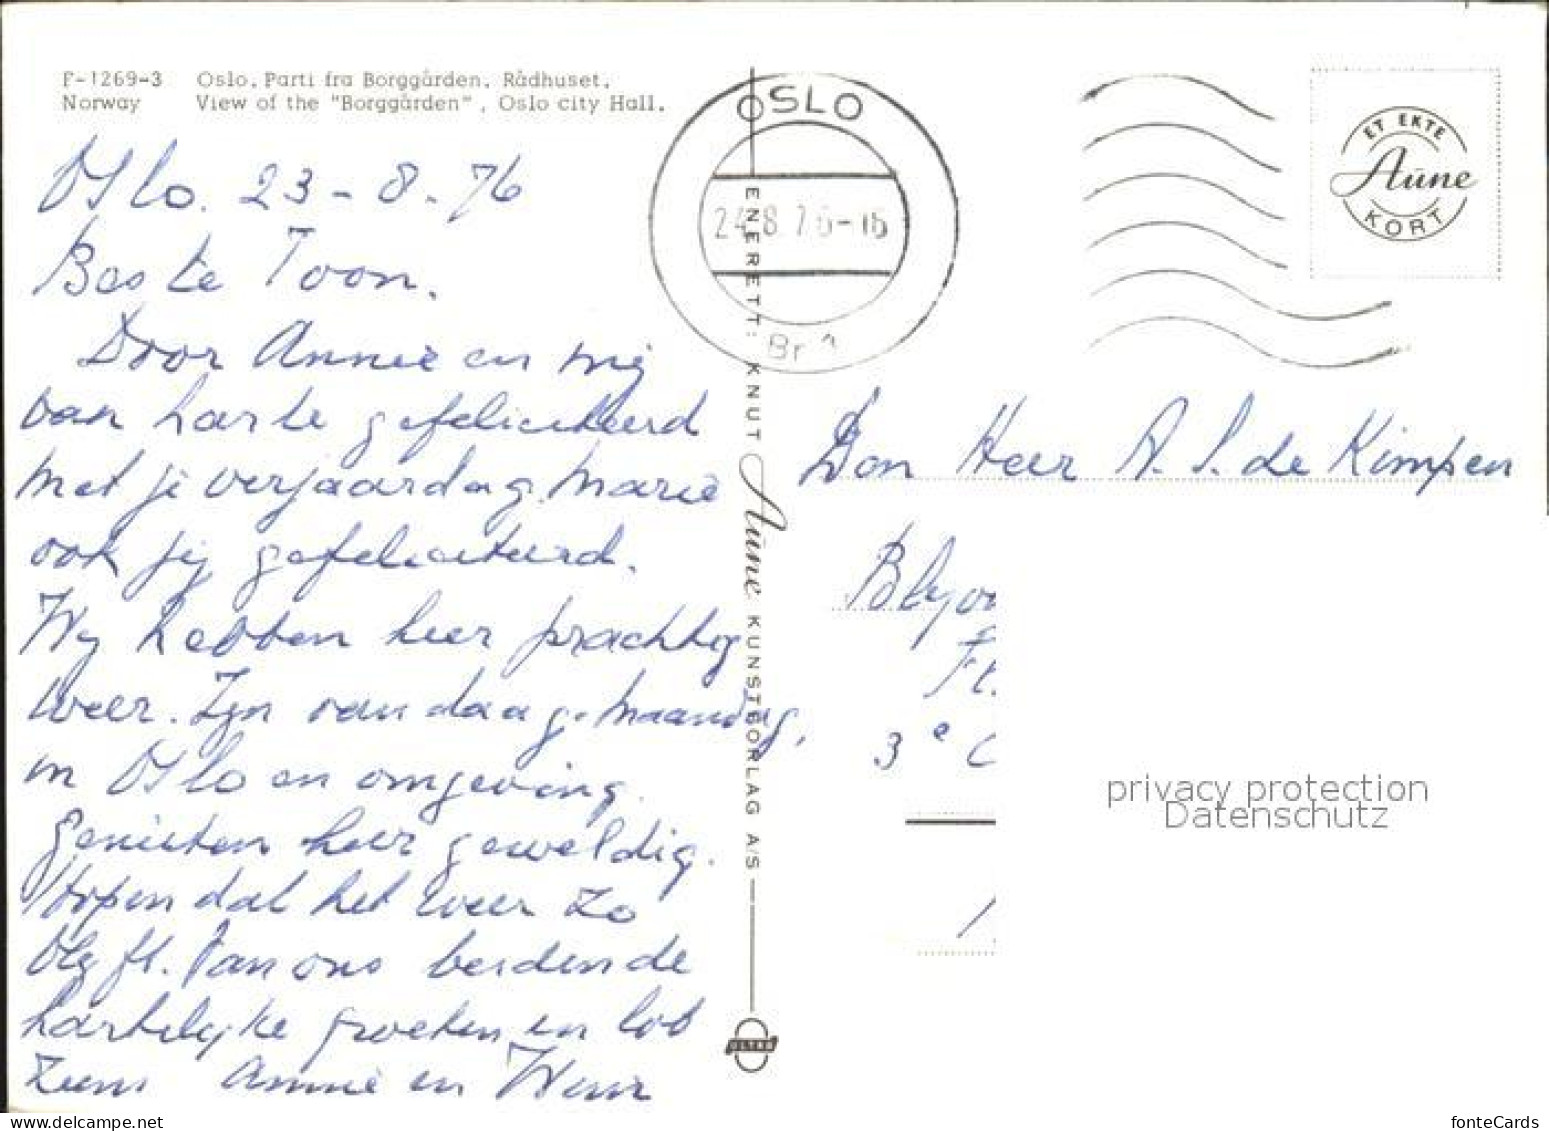 F-1269-3 Oslo. Parti fra Borggården. Rådhuset.
Norway View of the "Borggården", Oslo city Hall.
Oslo. 23-8-76
Beste Toon.
Door Annie en mij
van harte gefeliciteerd
met je verjaardag. Marie
ook jij gefeliciteerd.
Wij hebben hier prachtig
weer. Zijn vandaag. Maandag,
in Oslo en omgeving.
Genieten hier geweldig.
Hopen dat het weer zo
blijft. Van ons beiden de
hartelijke groeten en tot
ziens Annie en Wim
OSLO
24.8.76-16
Br
ENERETT: KNUT Aune KUNSTFORLAG A/S
ULTRA
ET EKTE
Aune
KORT
Den Heer A. S. de Kimpen
Blyvo
Ft.
3e C
privacy protection
Datenschutz
delcampe.net
fonteCards